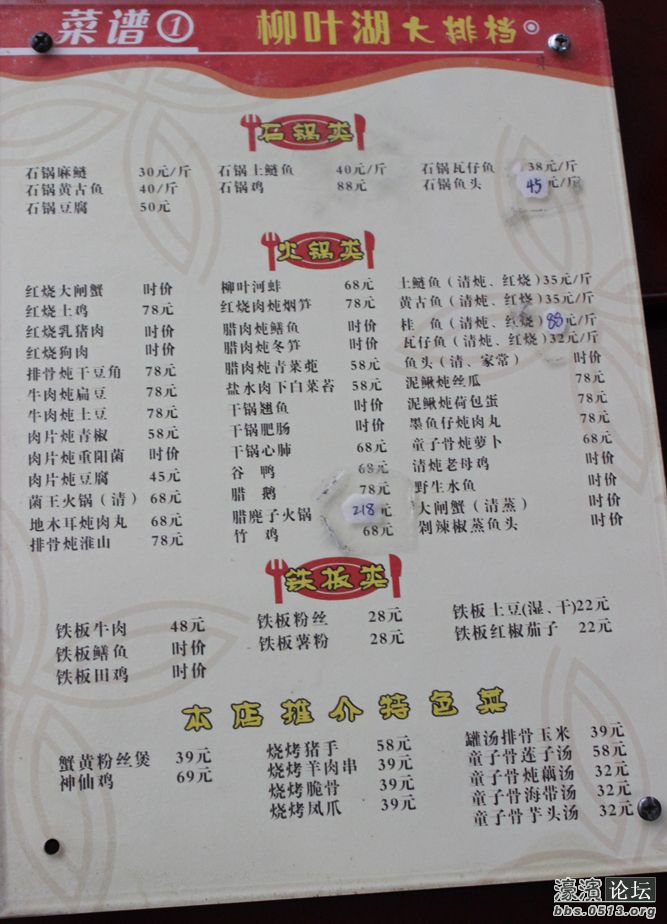 菜谱① 柳叶湖大排档
石锅类
石锅麻鲢 30元/斤 石锅土鲢鱼 40元/斤 石锅瓦仔鱼 38元/斤
石锅黄古鱼 40/斤 石锅鸡 88元 石锅鱼头 45元/斤
石锅豆腐 50元
火锅类
红烧大闸蟹 时价 柳叶河蚌 68元 土鲢鱼(清炖、红烧)35元/斤
红烧土鸡 78元 红烧肉炖烟笋 78元 黄古鱼(清炖、红烧)35元/斤
红烧乳猪肉 时价 腊肉炖鳝鱼 时价 桂 鱼(清炖、红烧)88元/斤
红烧狗肉 时价 腊肉炖冬笋 时价 瓦仔鱼(清炖、红烧)32元/斤
排骨炖干豆角 78元 腊肉炖青菜蔸 58元 鱼头(清、家常) 时价
牛肉炖扁豆 78元 盐水肉下白菜苔 58元 泥鳅炖丝瓜 78元
牛肉炖土豆 78元 干锅翘鱼 时价 泥鳅炖荷包蛋 78元
肉片炖青椒 58元 干锅肥肠 时价 墨鱼仔炖肉丸 78元
肉片炖重阳菌 时价 干锅心肺 68元 童子骨炖萝卜 68元
肉片炖豆腐 45元 谷 鸭 68元 清炖老母鸡 时价
菌王火锅(清) 68元 腊 鹅 78元 野生水鱼 时价
地木耳炖肉丸 68元 腊麂子火锅 218元 大闸蟹(清蒸) 时价
排骨炖淮山 78元 竹 鸡 68元 剁辣椒蒸鱼头 时价
铁板类
铁板牛肉 48元 铁板粉丝 28元 铁板土豆(湿、干)22元
铁板鳝鱼 时价 铁板薯粉 28元 铁板红椒茄子 22元
铁板田鸡 时价
本店推介特色菜
蟹黄粉丝煲 39元 烧烤猪手 58元 罐汤排骨玉米 39元
神仙鸡 69元 烧烤羊肉串 39元 童子骨莲子汤 58元
烧烤脆骨 39元 童子骨炖藕汤 32元
烧烤凤爪 39元 童子骨海带汤 32元
童子骨芋头汤 32元
濠滨论坛
bbs.0513.org